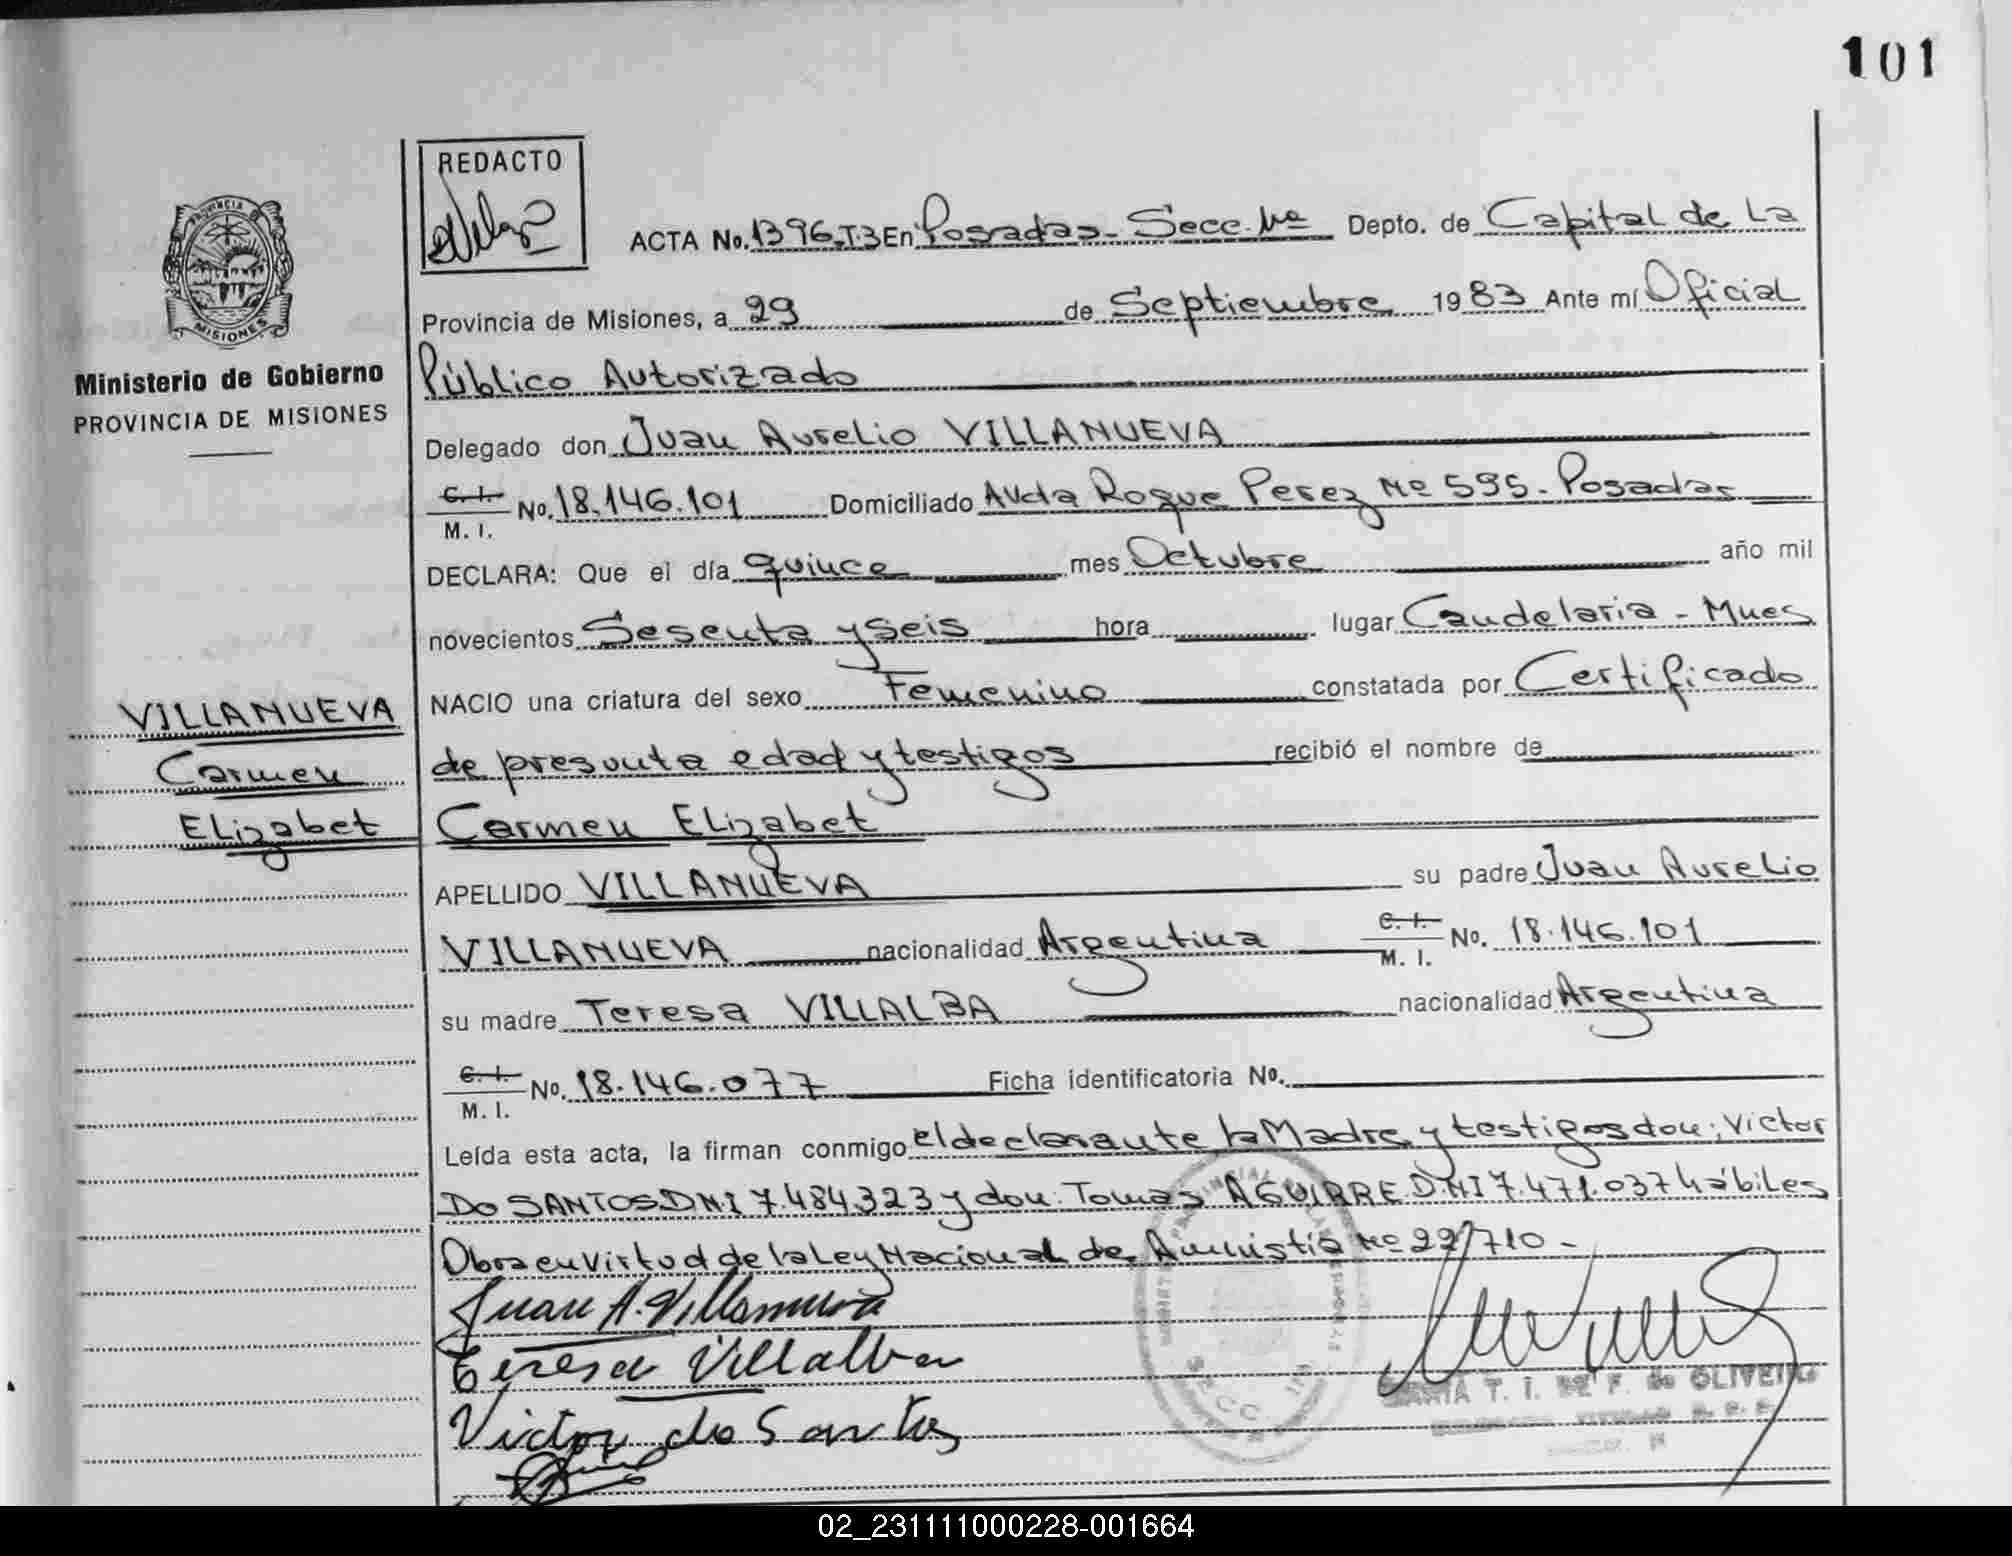 101
REDACTO
ACTA No. 1396, T.3 En Posadas - Secc. 1ra Depto. de Capital de La
PROVINCIA DE
MISIONES
Provincia de Misiones, a 29 de Septiembre 1983 Ante mí Oficial
Ministerio de Gobierno
Público Autorizado
PROVINCIA DE MISIONES
Delegado don Juan Aurelio VILLANUEVA
C. I.
M. I. No. 18.146.101 Domiciliado Avda Roque Perez Nº 595 - Posadas
DECLARA: Que el día quince mes Octubre año mil
novecientos Sesenta y Seis hora lugar Candelaria - Mnes
NACIO una criatura del sexo Femenino constatada por Certificado
VILLANUEVA
Carmen
Elizabet
de presunta edad y testigos recibió el nombre de
Carmen Elizabet
APELLIDO VILLANUEVA su padre Juan Aurelio
VILLANUEVA nacionalidad Argentina C. I. M. I. No. 18.146.101
su madre Teresa VILLALBA nacionalidad Argentina
C. I.
M. I. No. 18.146.077 Ficha identificatoria No.
Leída esta acta, la firman conmigo el declarante la Madre y testigos don: Victor
Do SANTOS D.N.I 7.484.323 y don Tomas AGUIRRE D.N.I 7.471.037 hábiles
Obra en Virtud de la Ley Nacional de Amnistia Nº 22/710 -
Juan A. Villanueva
Teresa Villalba
Victor do Santos
MARIA T. I. DE F. de OLIVEIRA
02_231111000228-001664